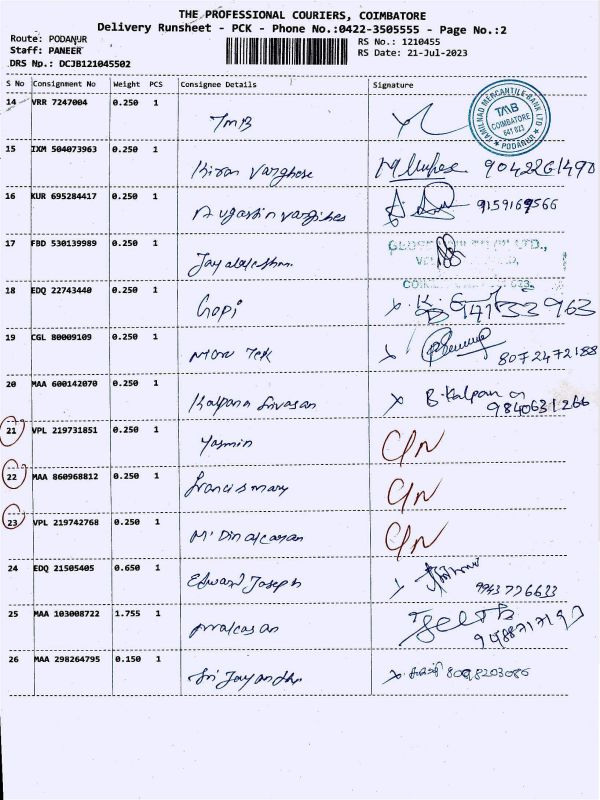 THE PROFESSIONAL COURIERS, COIMBATORE
Delivery Runsheet - PCK - Phone No.:0422-3505555 - Page No.:2
Route: PODANUR
RS No.: 1210455
Staff: PANEER
RS Date: 21-Jul-2023
DRS No.: DCJB121045502
S No Consignment No Weight PCS Consignee Details Signature
14 VRR 7247004 0.250 1
TMB
TAMILNAD MERCANTILE BANK LTD
TMB
COIMBATORE
641 023
PODANUR
15 IXM 504073963 0.250 1
Kiran Varghese 9042261490
16 KUR 695284417 0.250 1
9159169566
17 FBD 530139989 0.250 1
18 EDQ 22743440 0.250 1
Gopi
19 CGL 80009109 0.250 1
8072472188
20 MAA 600142070 0.250 1
Kalpana B. Kalpana
9840631266
21 VPL 219731851 0.250 1
Yasmin C/N
22 MAA 860968812 0.250 1
Francis mary C/N
23 VPL 219742768 0.250 1
C/N
24 EDQ 21505405 0.650 1
Edward Joseph 9943776633
25 MAA 103008722 1.755 1
26 MAA 298264795 0.150 1
8098203086